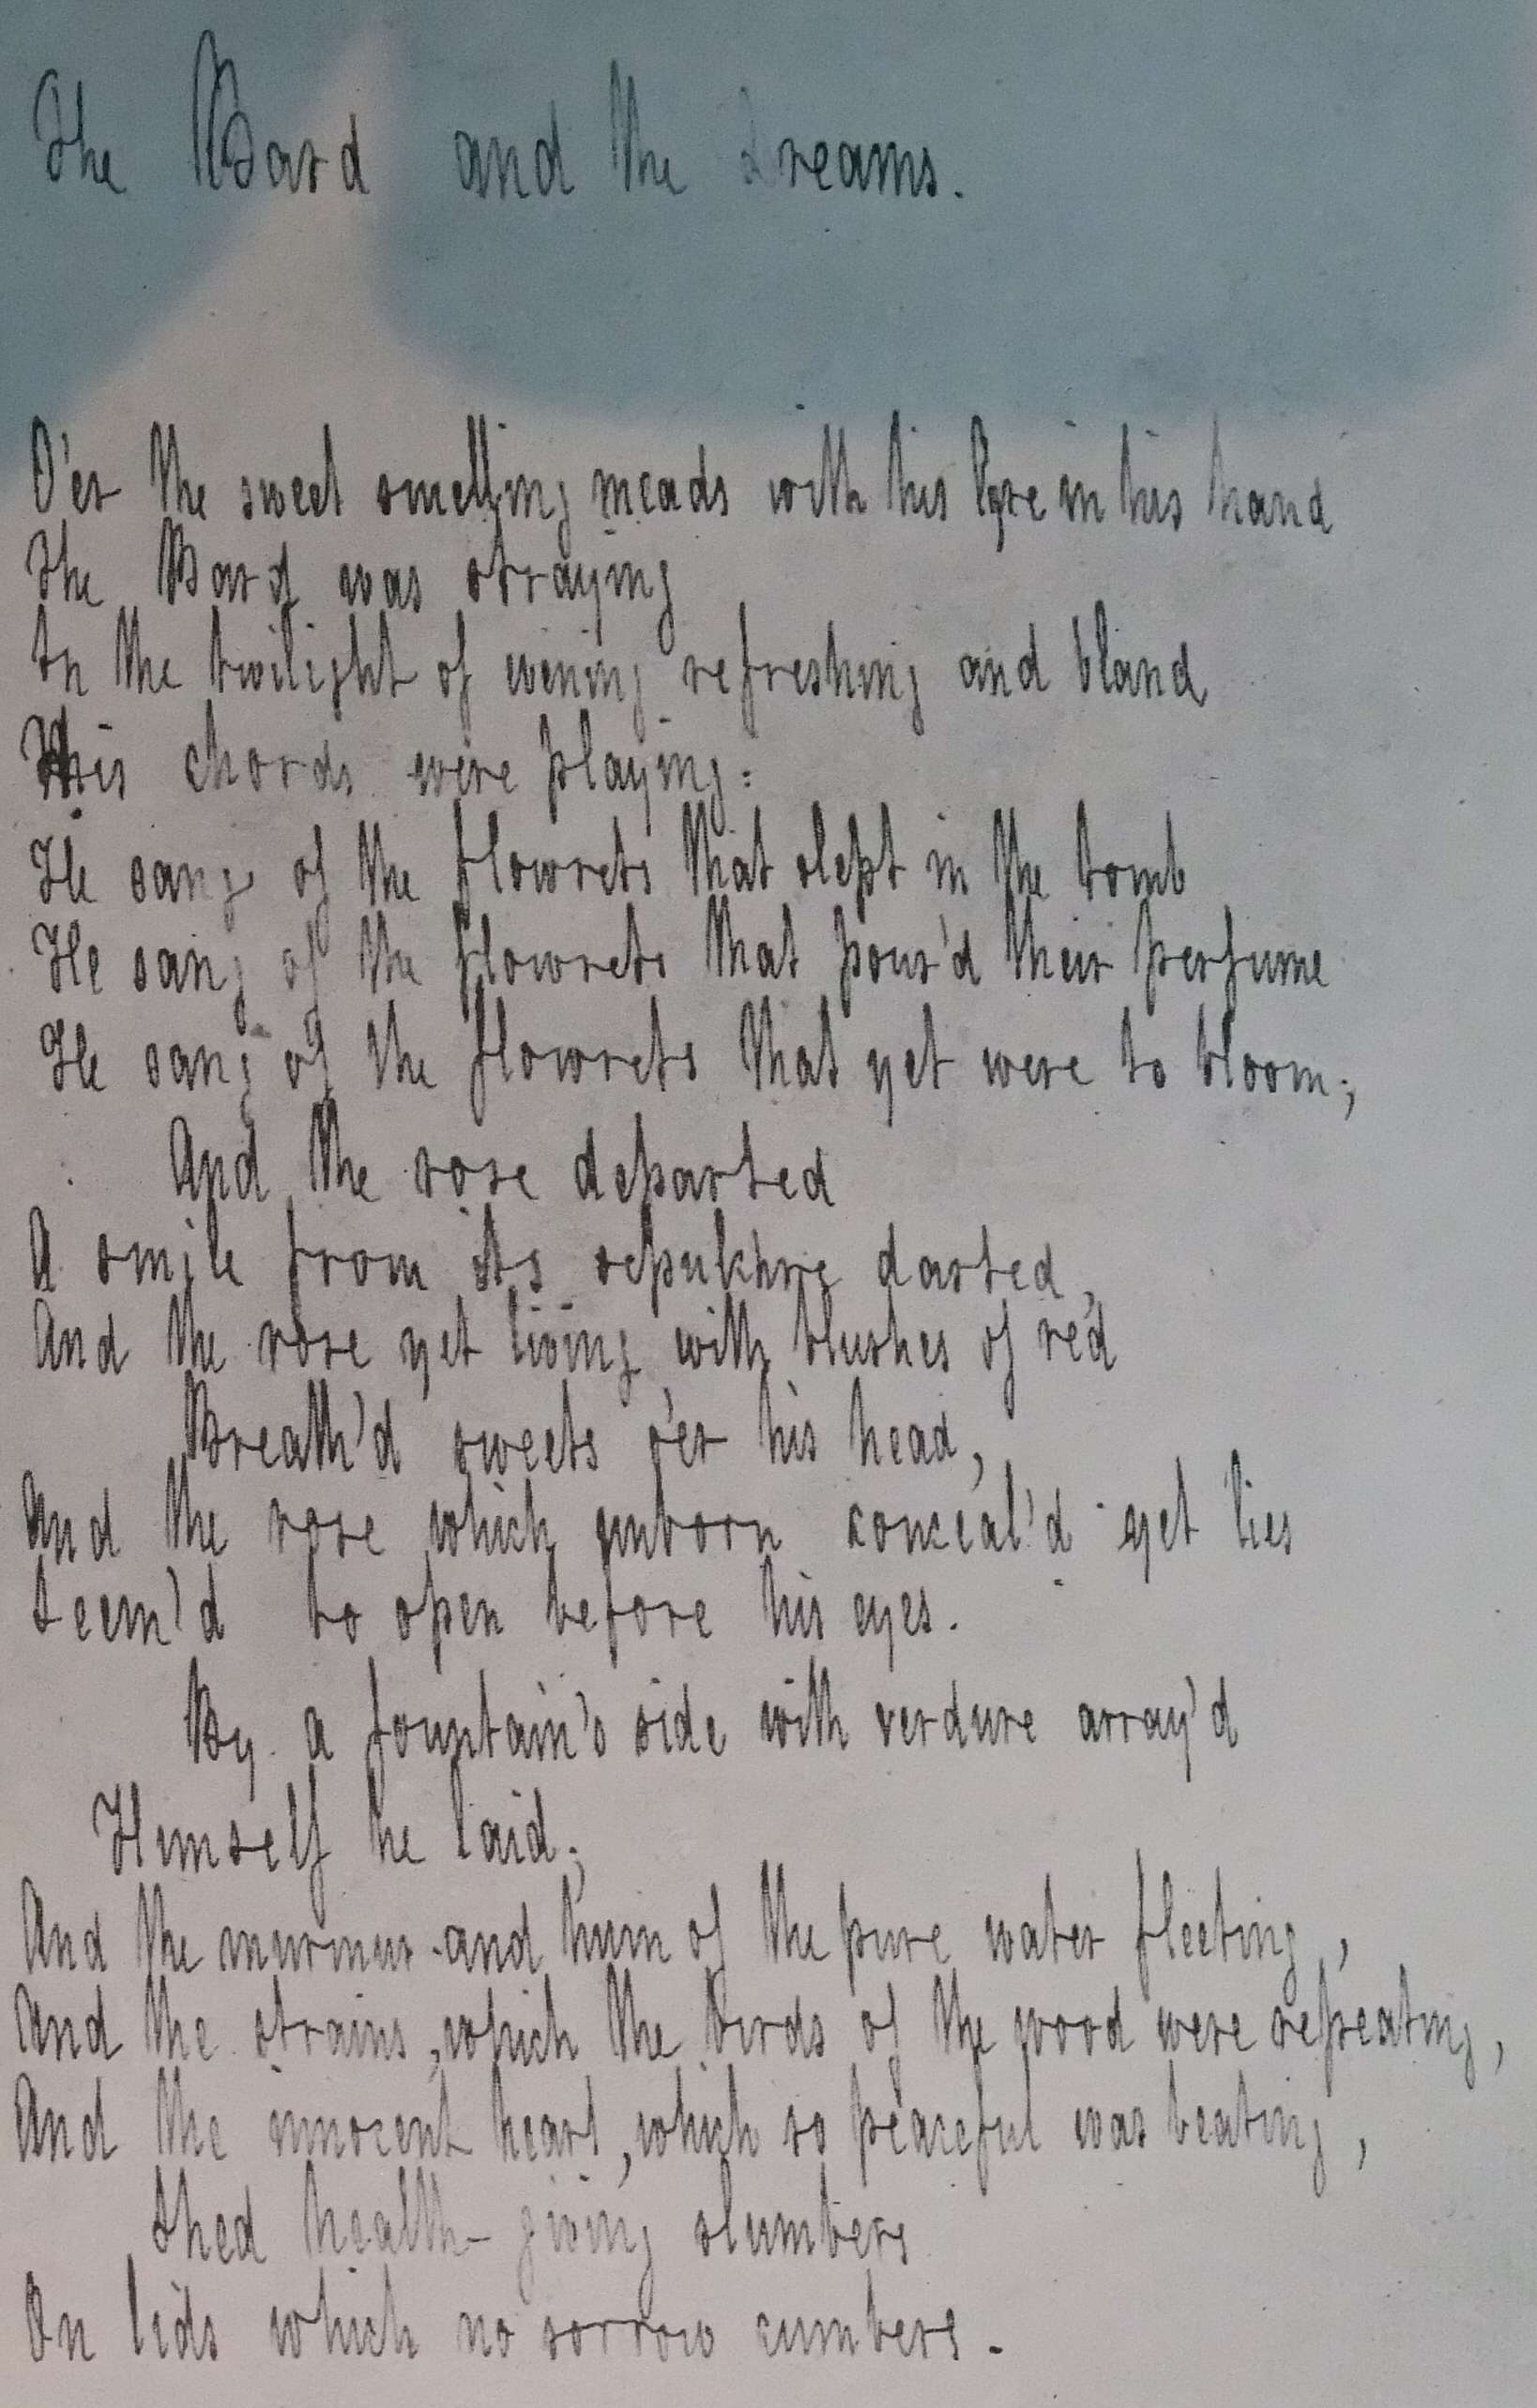 The Bard and the Dreams.
O'er the sweet smelling meads with his lyre in his hand
The Bard was straying
In the twilight of evening refreshing and bland
His chords were playing:
He sang of the flowrets that slept in the tomb
He sang of the flowrets that pour'd their perfume
He sang of the flowrets that yet were to bloom;
And the rose departed
A smile from its sepulchre darted,
And the rose yet living with blushes of red
Breath'd sweets o'er his head,
And the rose which unborn conceal'd yet lies
Seem'd to open before his eyes.
By a fountain's side with verdure array'd
Himself he laid;
And the murmur and hum of the pure water fleeting,
And the strains, which the birds of the wood were repeating,
And the innocent heart, which so peaceful was beating,
Shed health-giving slumbers
On lids which no sorrow cumbers.